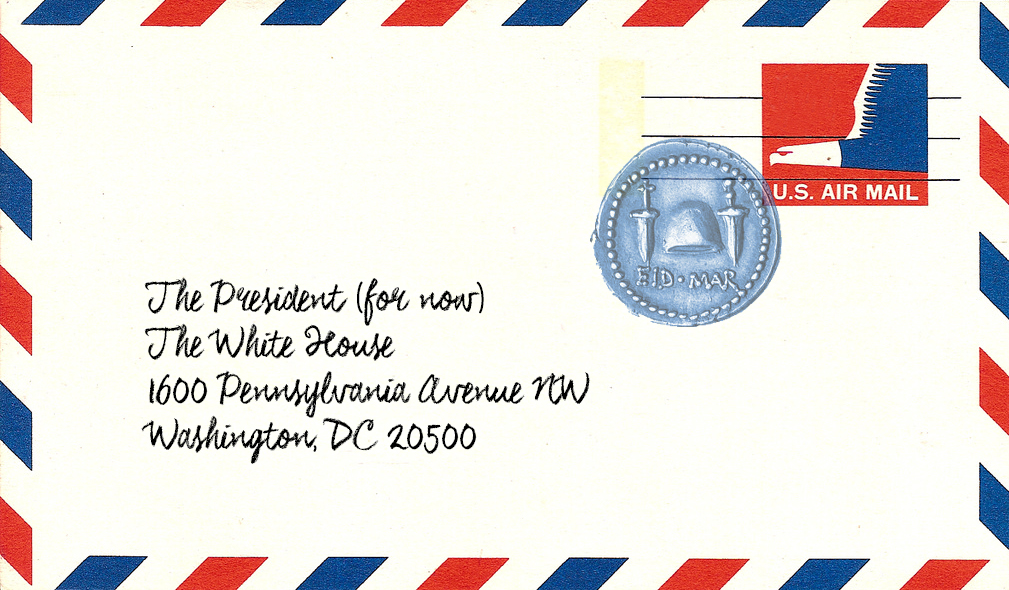 U.S. AIR MAIL
EID·MAR
The President (for now)
The White House
1600 Pennsylvania Avenue NW
Washington, DC 20500